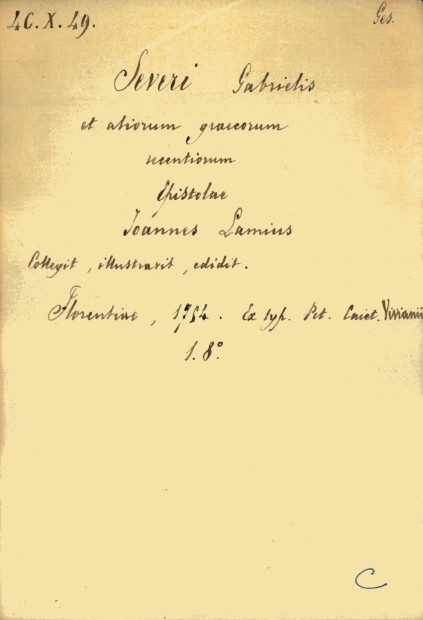 4C.X.49.
Ges.
Severi Gabrielis
et aliorum graecorum
recentiorum
Epistolae
Joannes Lamius
Collegit, illustravit, edidit.
Florentiae, 1754. Ex typ. Pet. Caiet. Viviani
1. 8°
C